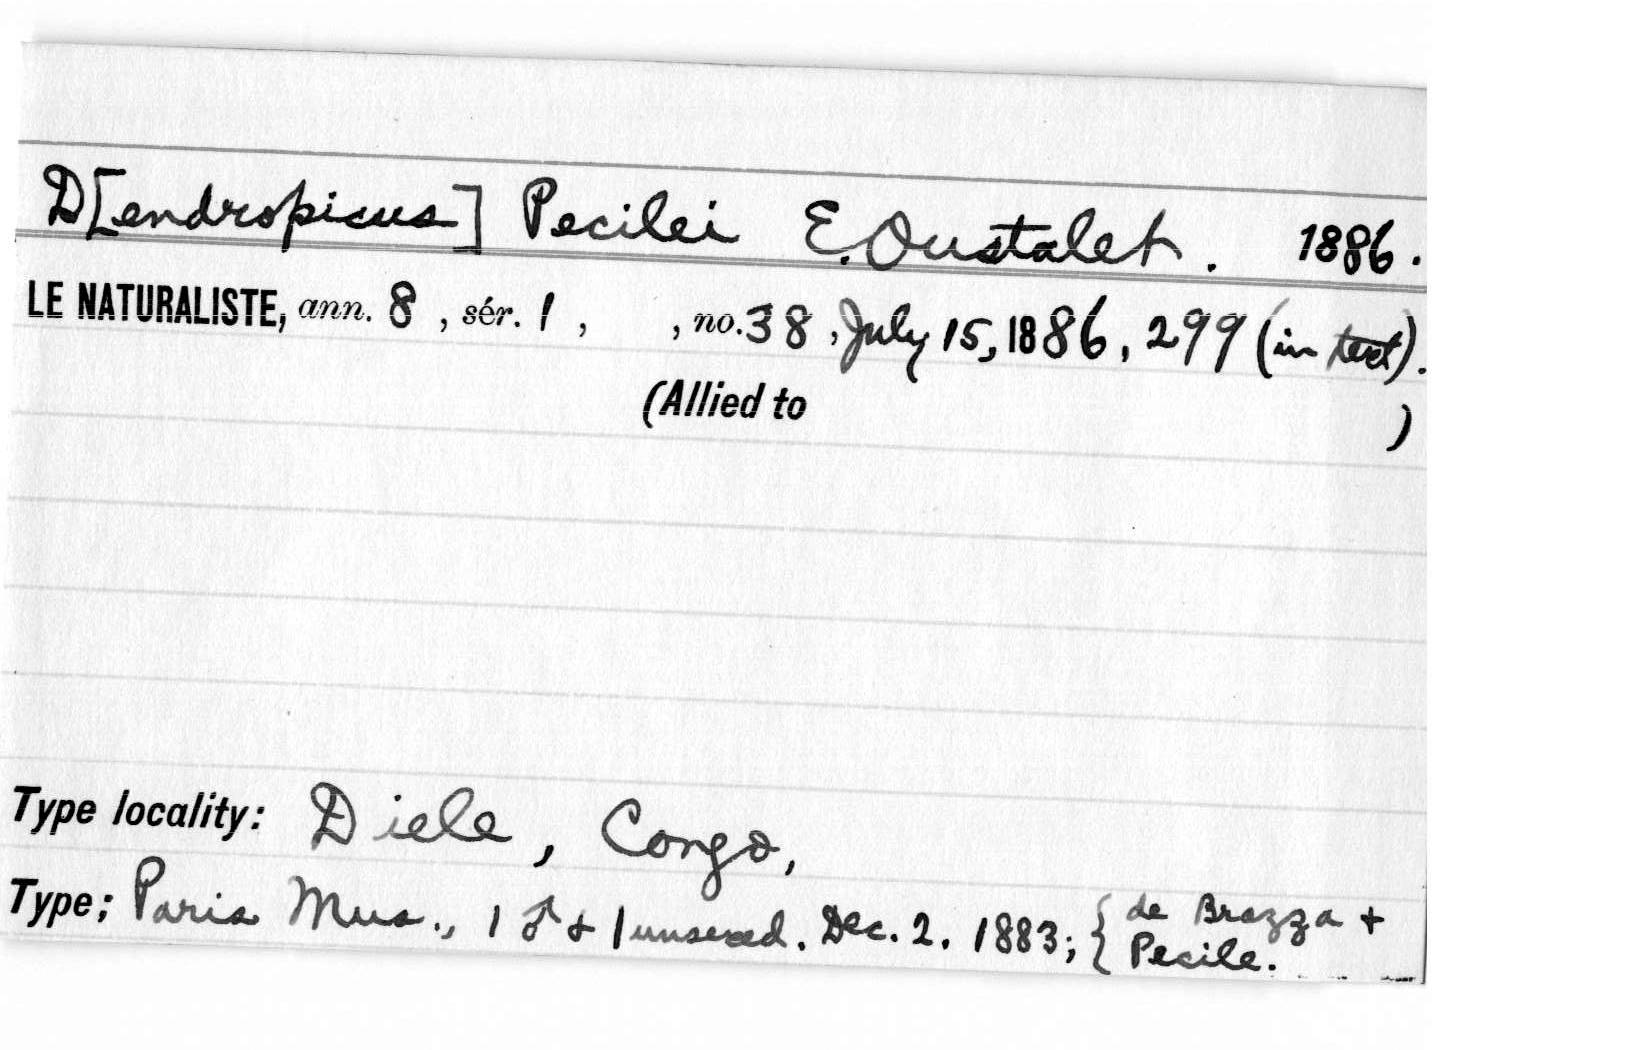 D[endropicus] Pecilei E. Oustalet. 1886.
LE NATURALISTE, ann. 8, sér. 1, , no. 38, July 15, 1886, 299 (in text).
(Allied to )
Type locality: Diele, Congo,
Type; Paris Mus., 1 ♂ & 1 unsexed. Dec. 2. 1883; { de Brazza +
Pecile.